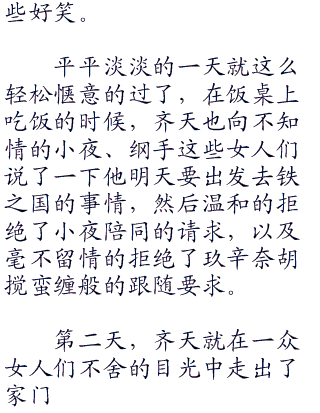 些好笑。
平平淡淡的一天就这么
轻松惬意的过了，在饭桌上
吃饭的时候，齐天也向不知
情的小夜、纲手这些女人们
说了一下他明天要出发去铁
之国的事情，然后温和的拒
绝了小夜陪同的请求，以及
毫不留情的拒绝了玖辛奈胡
搅蛮缠般的跟随要求。
第二天，齐天就在一众
女人们不舍的目光中走出了
家门